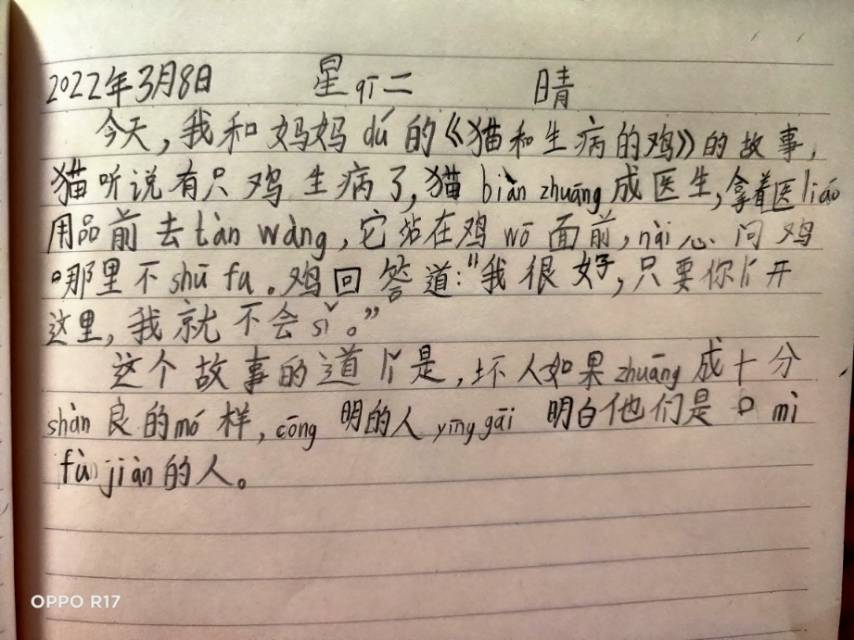 2022年3月8日 星qī二 晴
今天,我和妈妈dú的《猫和生病的鸡》的故事,
猫听说有只鸡生病了,猫biàn zhuāng成医生,拿着医liáo
用品前去tàn wàng,它站在鸡wō面前,nài心问鸡
哪里不shū fu。鸡回答道:“我很好,只要你lí开
这里,我就不会sǐ。”
这个故事的道lǐ是,坏人如果zhuāng成十分
shàn良的mó样,cōng明的人yīng gāi明白他们是口mì
fù jiàn的人。
OPPO R17